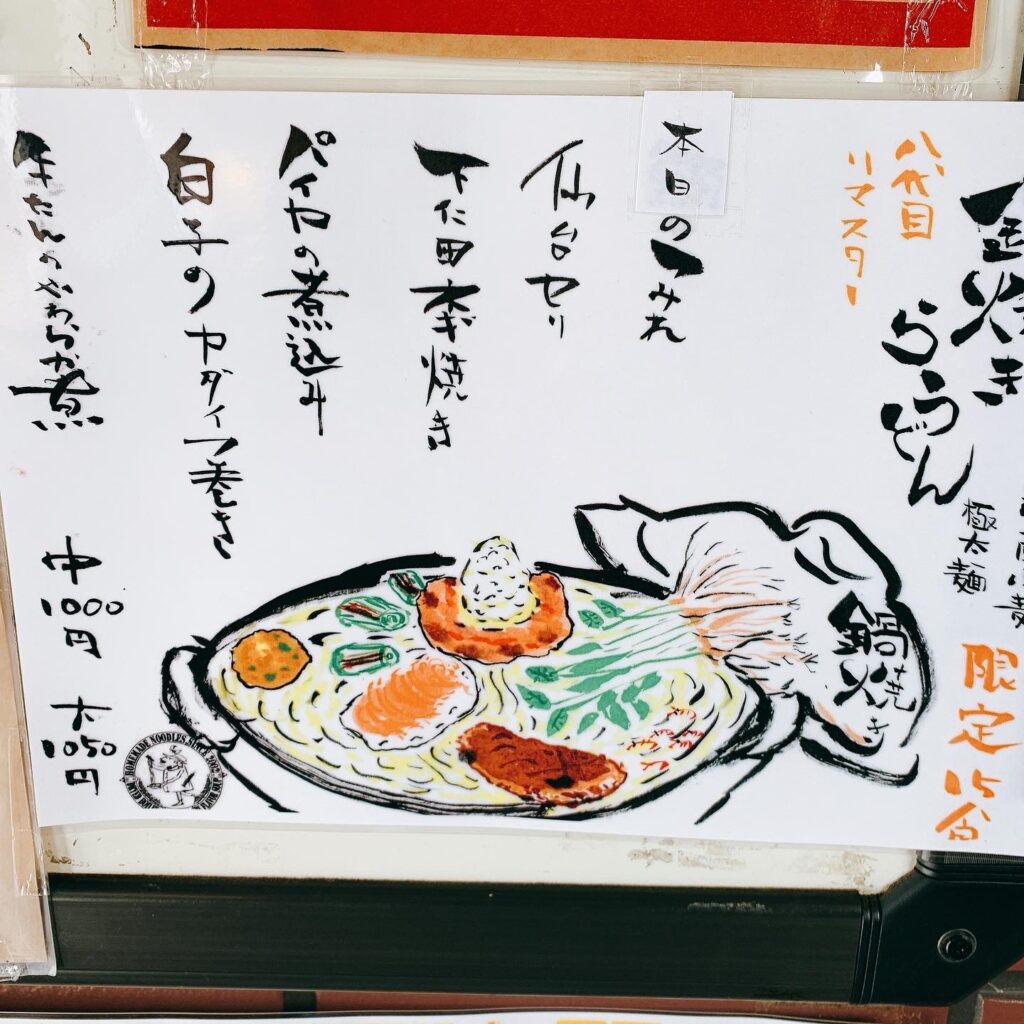 鍋焼き
らうどん
極太麺
限定15食
八代目
リマスター
本日のつみれ
仙台セリ
下仁田ネギ焼き
パイカの煮込み
白子のカダイフ巻き
牛たんのやわらか煮
中
1000
円
大
1050
円
鍋焼き
HOMEMADE NOODLES SINCE